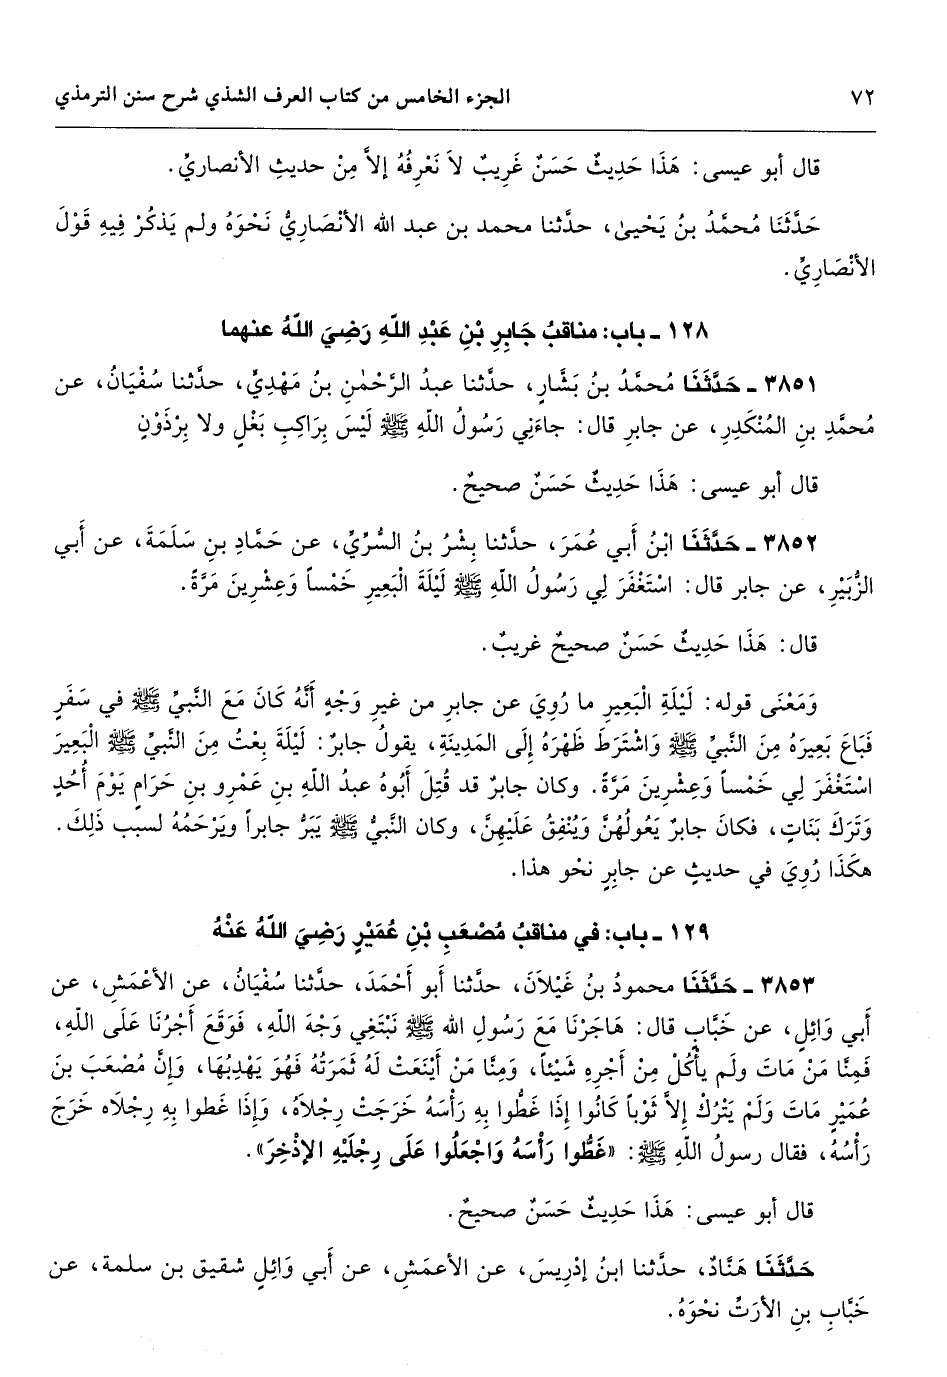 ٧٢ الجزء الخامس من كتاب العرف الشذي شرح سنن الترمذي
قال أبو عيسى: هَذَا حَدِيثٌ حَسَنٌ غَرِيبٌ لاَ نَعْرِفُهُ إلاَّ مِنْ حديثِ الأنصاريِّ.
حَدَّثَنَا مُحمَّدُ بنُ يَحْيىٰ، حدَّثنا محمد بن عبد الله الأنْصَارِيُّ نَحْوَهُ ولم يَذكُرْ فِيهِ قَوْلَ
الأنْصَارِيِّ.
١٢٨ ـ باب: مناقبُ جَابِرِ بْنِ عَبْدِ اللَّهِ رَضِيَ اللَّهُ عنهما
٣٨٥١ ـ حَدَّثَنَا مُحمَّدُ بنُ بَشَّارٍ، حدَّثنا عبدُ الرَّحْمٰنِ بنُ مَهْدِيٍّ، حدَّثنا سُفْيَانُ، عن
مُحمَّدِ بنِ المُنْكَدِرِ، عن جابرِ قال: جاءَنِي رَسُولُ اللَّهِ ﷺ لَيْسَ بِرَاكِبِ بَغْلٍ ولا بِرْذَوْنٍ
قال أبو عيسى: هَذَا حَدِيثٌ حَسَنٌ صحيحٌ.
٣٨٥٢ ـ حَدَّثَنَا ابْنُ أَبي عُمَرَ، حدَّثنا بِشْرُ بنُ السُّرِيِّ، عن حَمَّادِ بنِ سَلَمَةَ، عن أبي
الزُّبَيْرِ، عن جابر قال: اسْتَغْفَرَ لِي رَسُولُ اللَّهِ ﷺ لَيْلَةَ الْبَعِيرِ خَمْساً وَعِشْرِينَ مَرَّةً.
قال: هَذَا حَدِيثٌ حَسَنٌ صحيحٌ غريبٌ.
وَمَعْنَى قوله: لَيْلَةِ الْبَعِيرِ ما رُوِيَ عن جابرِ من غيرِ وَجْهٍ أَنَّهُ كَانَ مَعَ النَّبيِّ ﷺ في سَفَرٍ
فَبَاعَ بَعِيرَهُ مِنَ النَّبيِّ ﷺ وَاشْتَرَطَ ظَهْرَهُ إلَى المَدِينَةِ، يقولُ جابرٌ: لَيْلَةَ بِعْتُ مِنَ النَّبيِّ ﷺ الْبَعِيرَ
اسْتَغْفَرَ لِي خَمْساً وَعِشْرِينَ مَرَّةً. وكان جابرٌ قد قُتِلَ أَبُوهُ عبدُ اللَّهِ بنِ عَمْرِو بنِ حَرَامٍ يَوْمَ أُحُدٍ
وَتَرَكَ بَنَاتٍ، فكانَ جابرٌ يَعُولُهُنَّ وَيُنْفِقُ عَلَيْهِنَّ، وكان النَّبيُّ ﷺ يَبَرُّ جابراً ويَرْحَمُهُ لسببِ ذَلِكَ.
هكَذَا رُوِيَ في حديثٍ عن جابِرٍ نحْو هذا.
١٢٩ ـ باب: في مناقبُ مُصْعَبِ بْنِ عُمَيْرٍ رَضِيَ اللَّهُ عَنْهُ
٣٨٥٣ ـ حَدَّثَنَا محمودُ بنُ غَيْلاَنَ، حدَّثنا أَبو أحْمَدَ، حدَّثنا سُفْيَانُ، عن الأعْمَشِ، عن
أَبي وَائِلٍ، عن خَبَّابِ قال: هَاجَرْنَا مَعَ رَسُولِ الله ﷺ نَبْتَغِي وَجْهَ اللَّهِ، فَوَقَعَ أجْرُنَا عَلَى اللَّهِ،
فَمِنَّا مَنْ مَاتَ ولَم يأْكُلْ مِنْ أَجْرِهِ شَيْئاً، وَمِنَّا مَنْ أَيْنَعَتْ لَهُ ثَمَرَتُهُ فَهُوَ يَهْدِبُهَا، وَإنَّ مُصْعَبَ بن
عُمَيْرٍ مَاتَ وَلَمْ يَتْرُكْ إلاَّ ثَوْباً كَانُوا إذَا غَطُّوا بِهِ رَأْسَهُ خَرَجَتْ رِجْلاَهُ، وَإذَا غَطوا بِهِ رِجْلاَه خَرَجَ
رَأْسُهُ، فقال رسولُ اللَّهِ ﷺ: «غَطُّوا رَأْسَهُ وَاجْعَلُوا عَلَى رِجْلَيْهِ الإذْخِرَ».
قال أبو عيسى: هَذَا حَدِيثٌ حَسَنٌ صحيحٌ.
حَدَّثَنَا هَنَّادٌ، حدَّثنا ابنُ إدْرِيسَ، عن الأعمَشِ، عن أَبي وَائِلٍ شقيق بن سلمة، عن
خَبَّابِ بنِ الأرَتِّ نحْوَهُ.